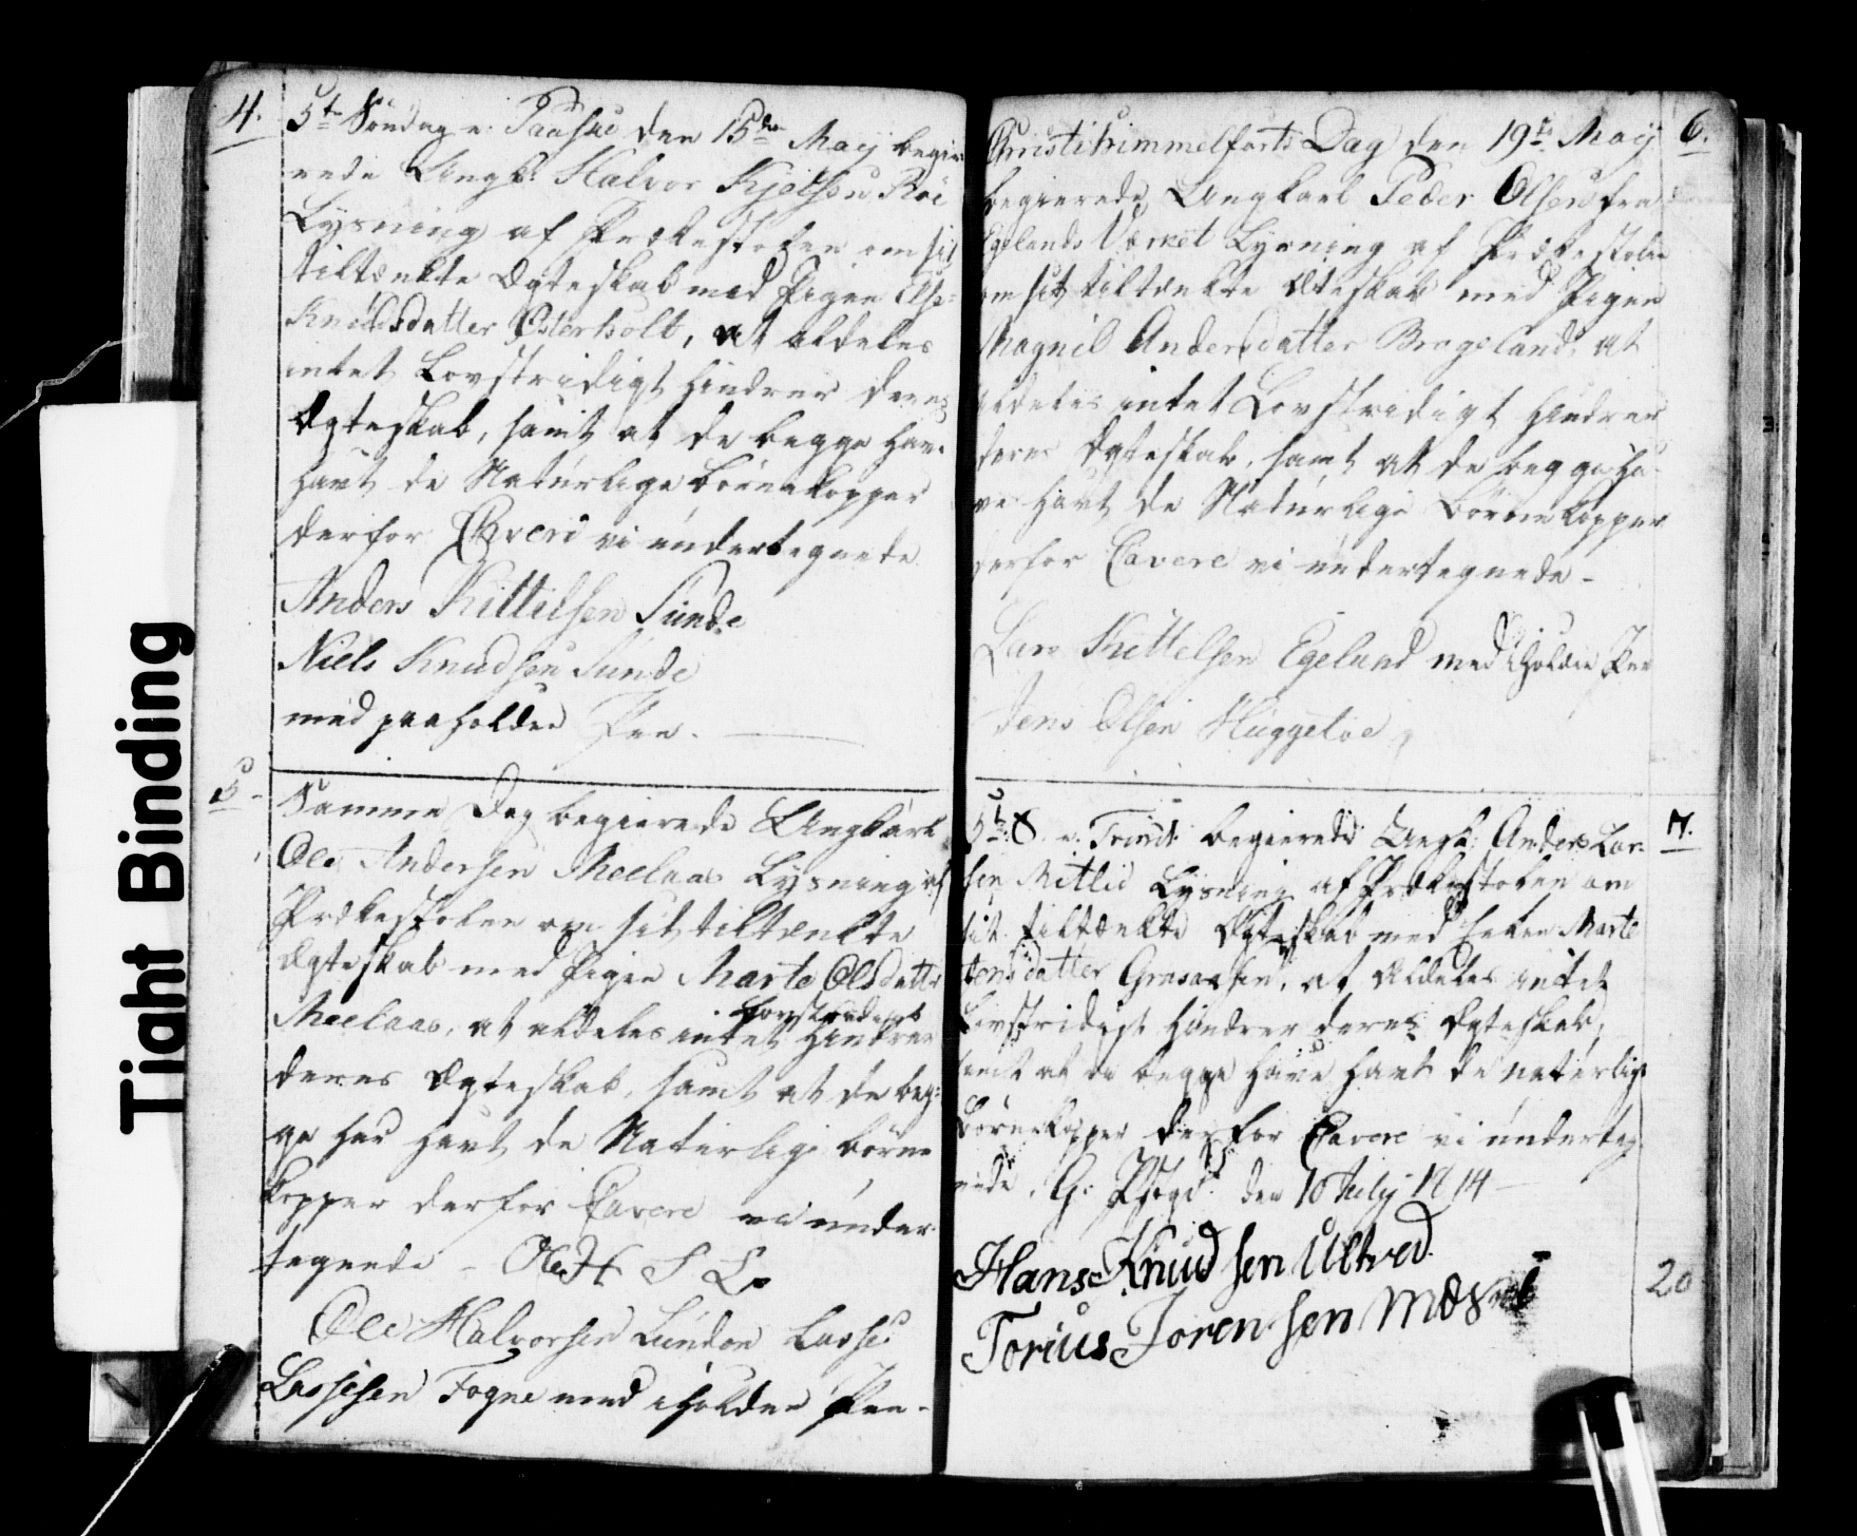 4.
5te Søndag e. Paaske den 15de Maij begie-
rede Ungk: Halvor Kjetilsen Röe
Lysning af Prækestolen om sit
tiltænkte Ægteskab med Pigen Else
Knudsdatter Østerholt, at aldeles
intet Lovstridigt hindrer deres
Ægteskab, samt at de begge have
havt de Naturlige Börnekopper
derfor Cavere vi undertegnede
Anders Kittilsen Sunde
Niels Knudsen Sunde
med paaholden Pen.
5
Samme Dag begierede Ungkarl
Ole Andersen Meelaas Lysning af
Prækestolen om sit tiltænkte
Ægteskab med Pigen Marte Olsdatter
Meelaas, at aldeles intet Lovstridigt hindrer
deres Ægteskab, samt at de beg-
ge har havt de Naturlige börne
kopper derfor Cavere vi under
tegnede - S L
Ole Halvorsen Lunden Lasse
Lassesen Fogne med iholden Pen-
6.
Christi himmelfarts Dag den 19de Maij
begierede Ungkarl Peder Olsen fra
Egelands Værket Lysning af Prækestolen
om sit tiltænkte Æteskab med Pigen
Magnil Andersdatter Brogeland, at
aldeles intet Lovstridigt hindrer
deres Ægteskab, samt at de begge ha-
ve havt de Naturlige Börnekopper
derfor Cavere vi undertegnede -
Lars Kittelsen Egeland med iholden Pen
Jens Olsen Huggeloe
7.
5te S. e. Trinit: begierede Ungk: Anders Lar-
sen Mitlid Lysning af Prækestolen om
sit tiltænkte Ægteskab med Enken Marte
Jensdatter Grasaasen, at aldeles intet
Lovstridigt hindrer deres Ægteskab,
samt at de begge have havt de naturlige
Börnekopper derfor Cavere vi underteg-
nede. G: Pstgd: den 10 Julij 1814
Hans Knudsen Ultved
Torius Jorensen
20
Tight Binding